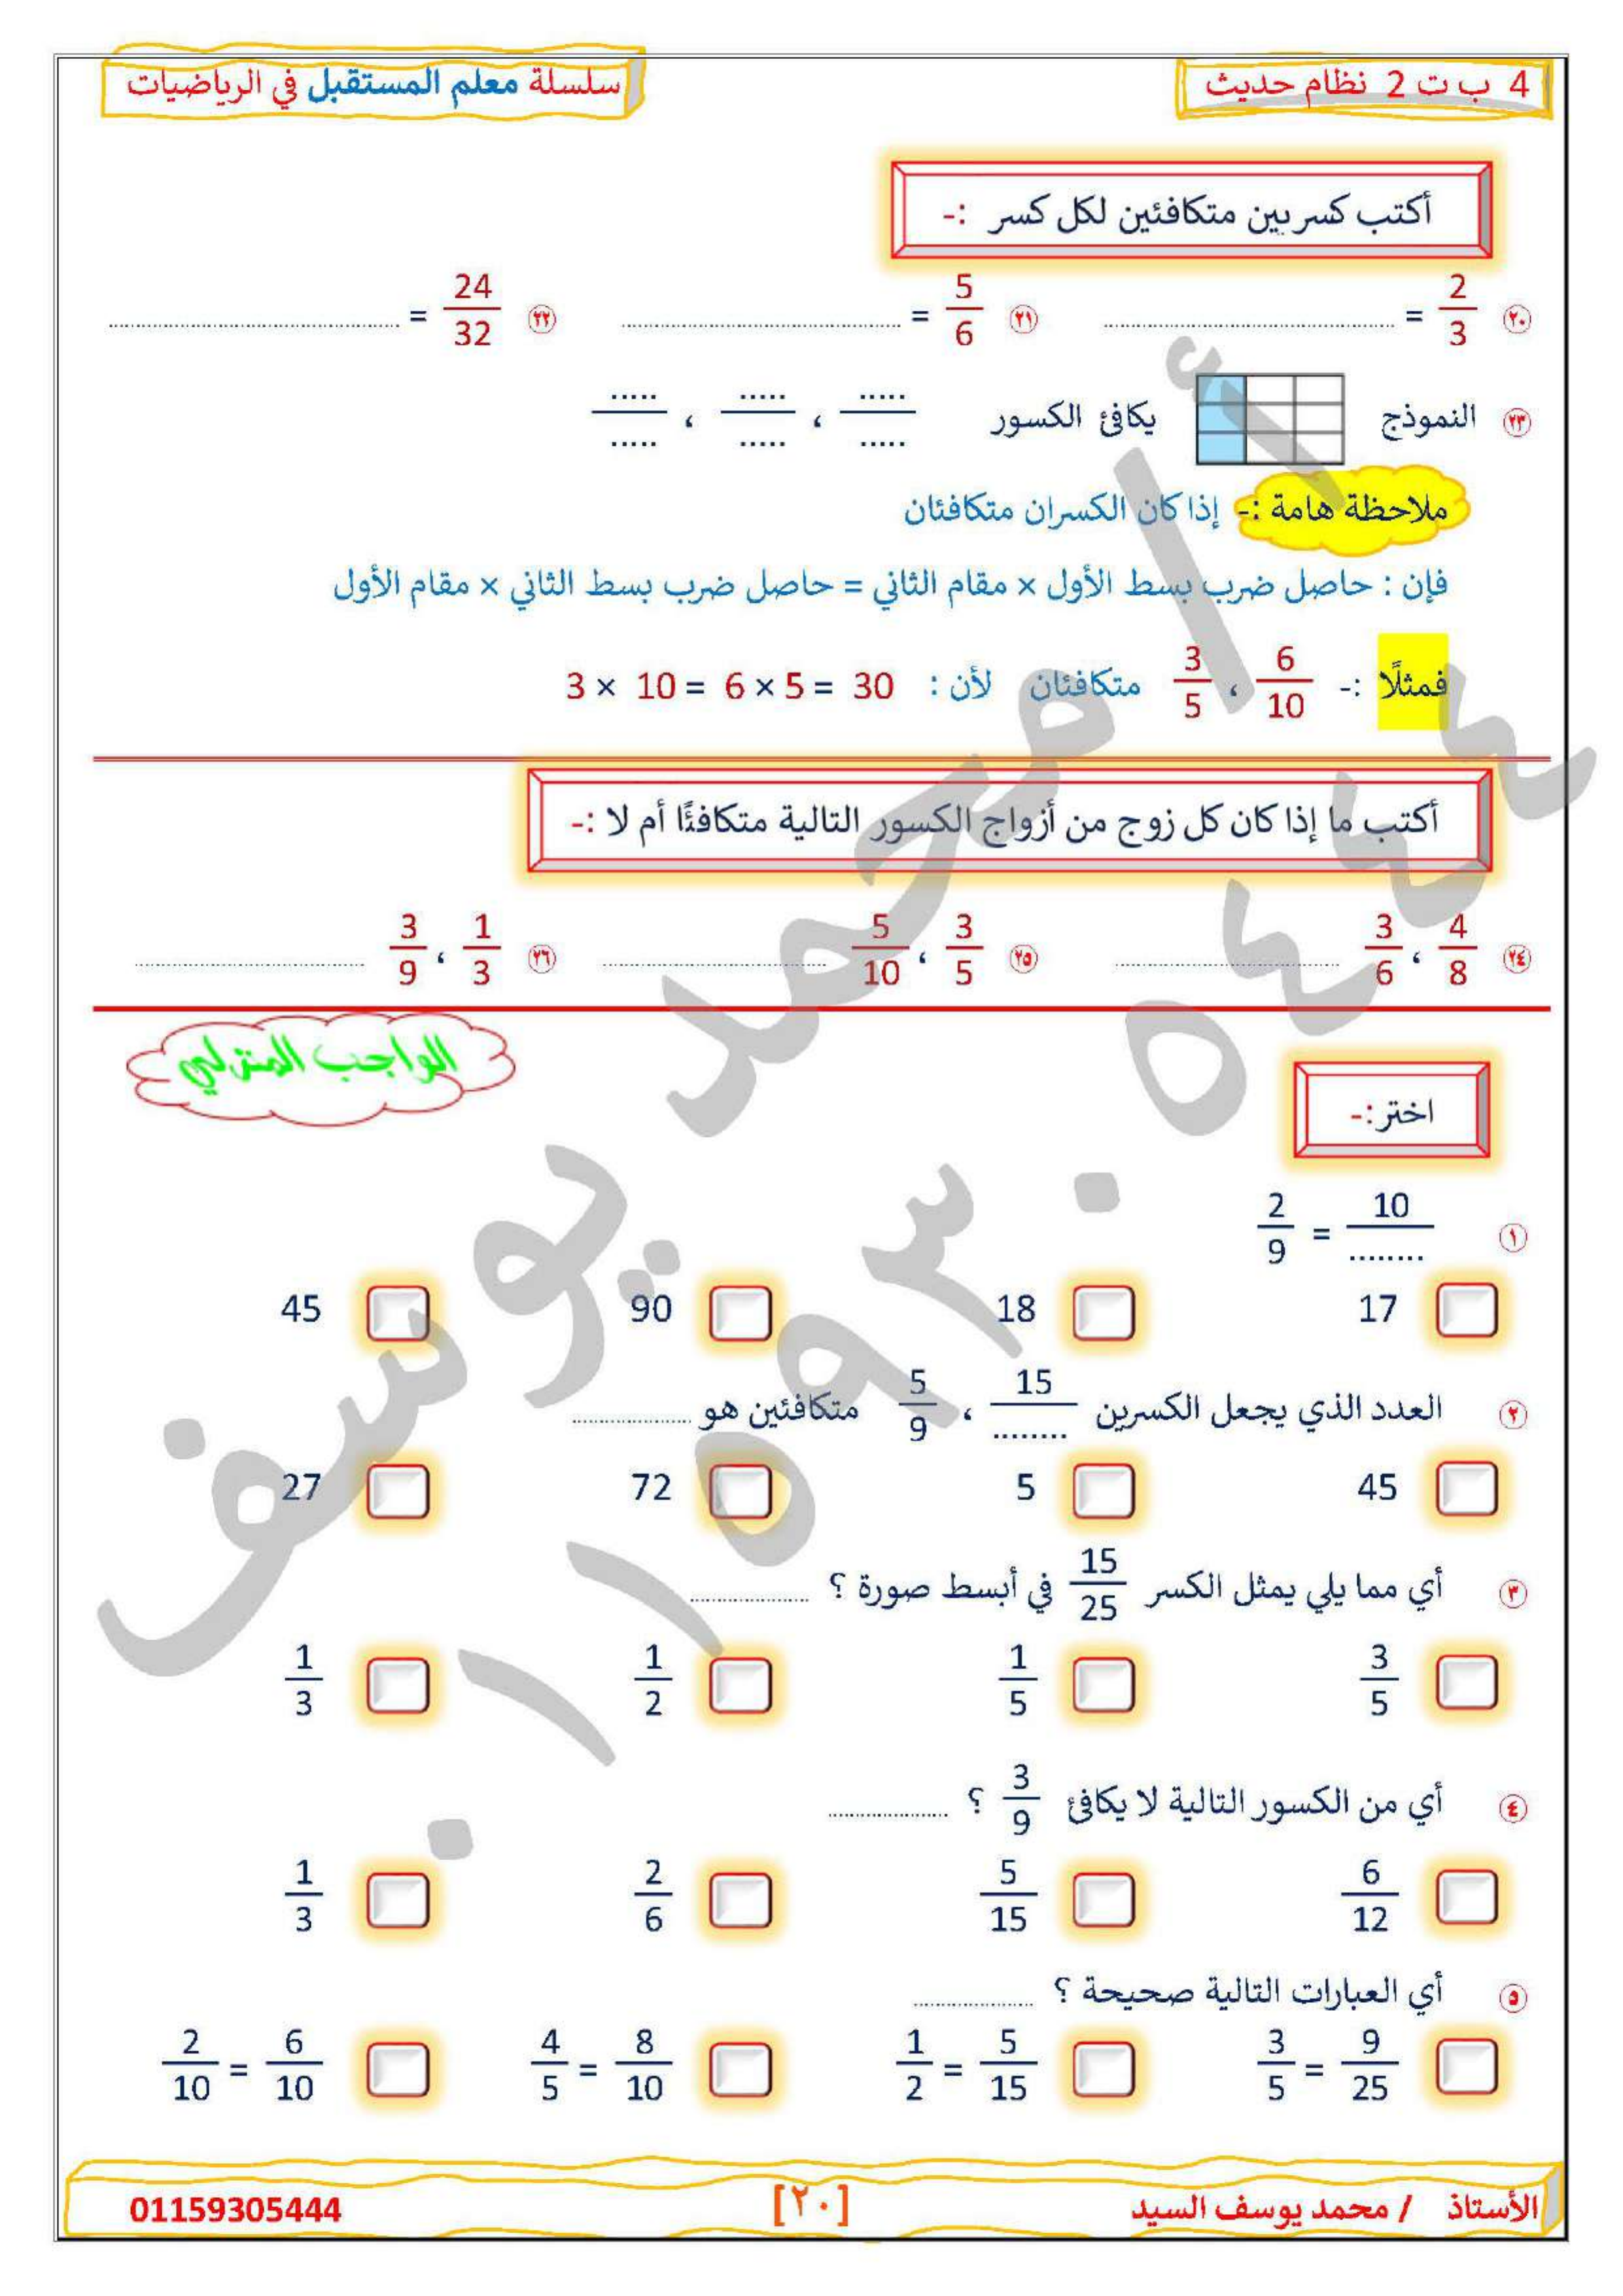 4 ب ت 2 نظام حديث
سلسلة معلم المستقبل في الرياضيات
أكتب كسريين متكافئين لكل كسر :-
٢٠ 2/3 = ........ ٢١ 5/6 = ........ ٢٢ 24/32 = ........
٢٣ النموذج يكافئ الكسور ...../..... ، ...../..... ، ...../.....
ملاحظة هامة :- إذا كان الكسران متكافئان
فإن : حاصل ضرب بسط الأول × مقام الثاني = حاصل ضرب بسط الثاني × مقام الأول
فمثلًا :- 6/10 ، 3/5 متكافئان لأن : 3 × 10 = 6 × 5 = 30
أكتب ما إذا كان كل زوج من أزواج الكسور التالية متكافئًا أم لا :-
٢٤ 4/8 ، 3/6 ........ ٢٥ 3/5 ، 5/10 ........ ٢٦ 1/3 ، 3/9 ........
الواجب المنزلي
اختر :-
١ 2/9 = 10/........
17 18 90 45
٢ العدد الذي يجعل الكسرين 15/........ ، 5/9 متكافئين هو ........
45 5 72 27
٣ أي مما يلي يمثل الكسر 15/25 في أبسط صورة ؟ ........
3/5 1/5 1/2 1/3
٤ أي من الكسور التالية لا يكافئ 3/9 ؟ ........
6/12 5/15 2/6 1/3
٥ أي العبارات التالية صحيحة ؟ ........
3/5 = 9/25 1/2 = 5/15 4/5 = 8/10 2/10 = 6/10
أ / محمد يوسف
٠١١٥٩٣٠٥٤٤٤
الأستاذ / محمد يوسف السيد
[٢٠]
01159305444